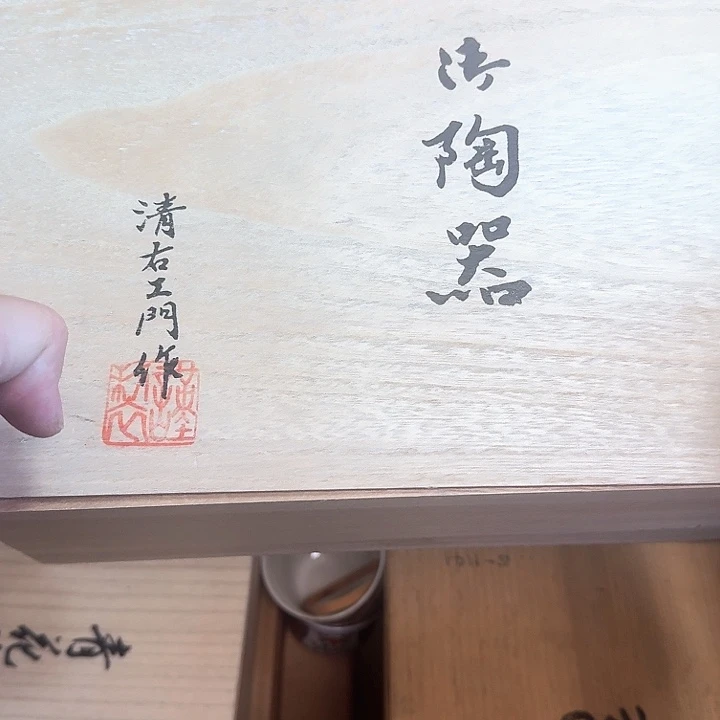 御陶器
清右エ門作
青花